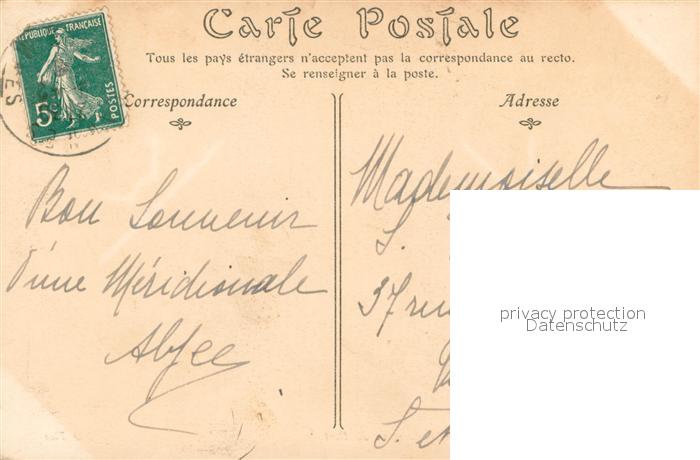 Carte Postale
Tous les pays étrangers n'acceptent pas la correspondance au recto.
Se renseigner à la poste.
RÉPUBLIQUE FRANÇAISE
5
POSTES
Correspondance
Bon Souvenir
d'une Méridionale
Adresse
Mademoiselle
S.
37 rue
S. et
privacy protection
Datenschutz